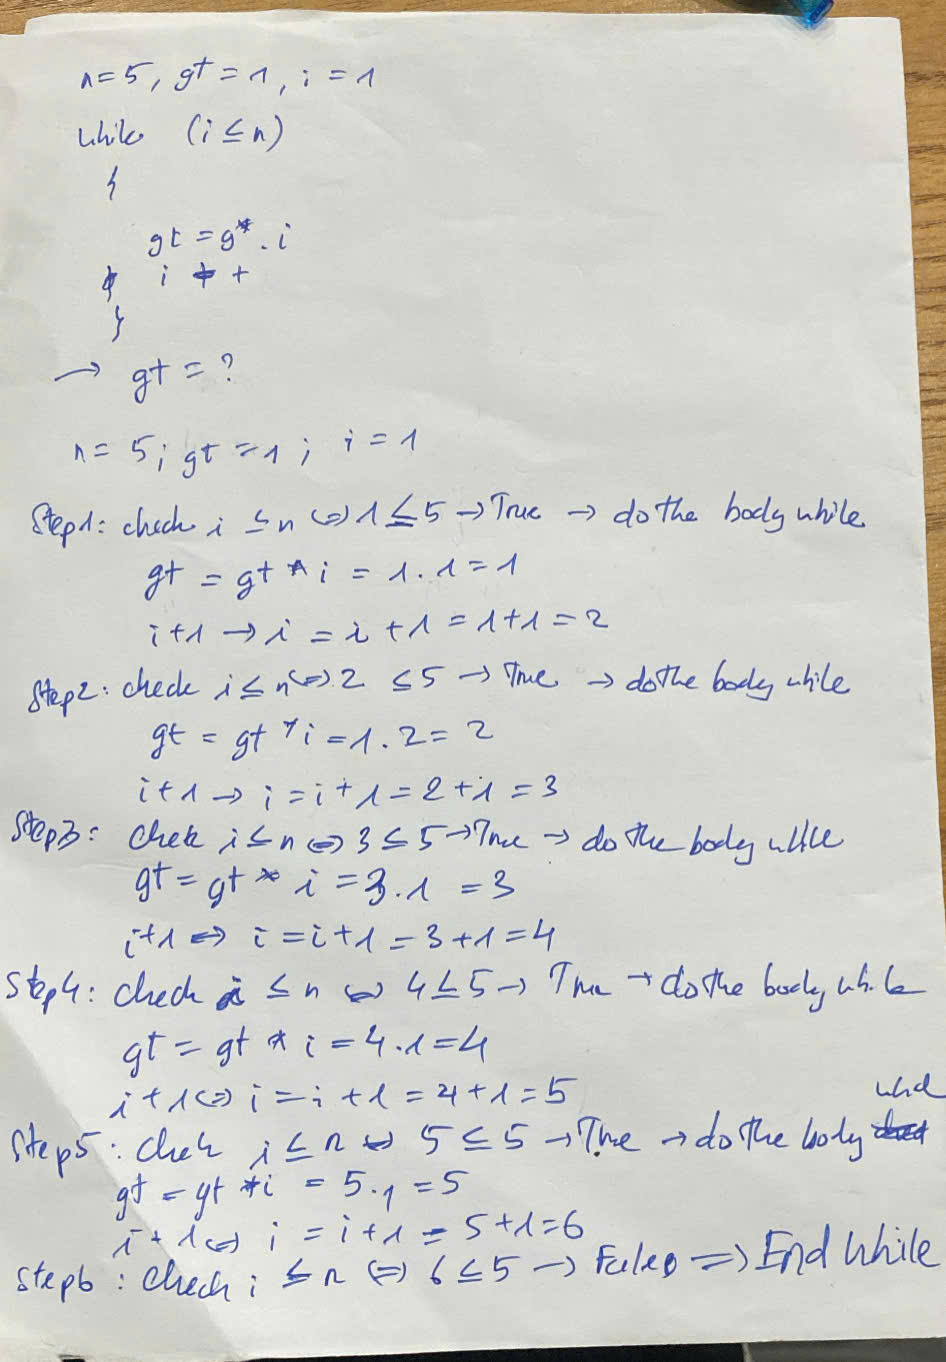 n=5, gt=1, i=1
while (i ≤ n)
{
gt = g* . i
i + +
}
→ gt = ?
n= 5; gt = 1; i = 1
Step1: check i ≤ n ⇔ 1 ≤ 5 → True → do the body while
gt = gt * i = 1.1=1
i+1 → i = i +1 = 1+1=2
Step2: check i ≤ n ⇔ 2 ≤ 5 → True → do the body while
gt = gt * i = 1.2= 2
i+1 → i = i+1 = 2+1 = 3
Step3: chek i ≤ n ⇔ 3 ≤ 5 → True → do the body while
gt = gt * i = 3.1 = 3
i+1 ⇔ i = i+1 = 3+1=4
Step4: check i ≤ n ⇔ 4 ≤ 5 → True → do the body while
gt = gt * i = 4.1=4
i+1 ⇔ i = i +1 = 4+1=5
Step5: chek i ≤ n ⇔ 5 ≤ 5 → True → do the body
gt = gt * i = 5.1 = 5
i + 1 ⇔ i = i+1 = 5+1=6
step6 : check i ≤ n ⇔ 6 ≤ 5 → False ⇒ End while